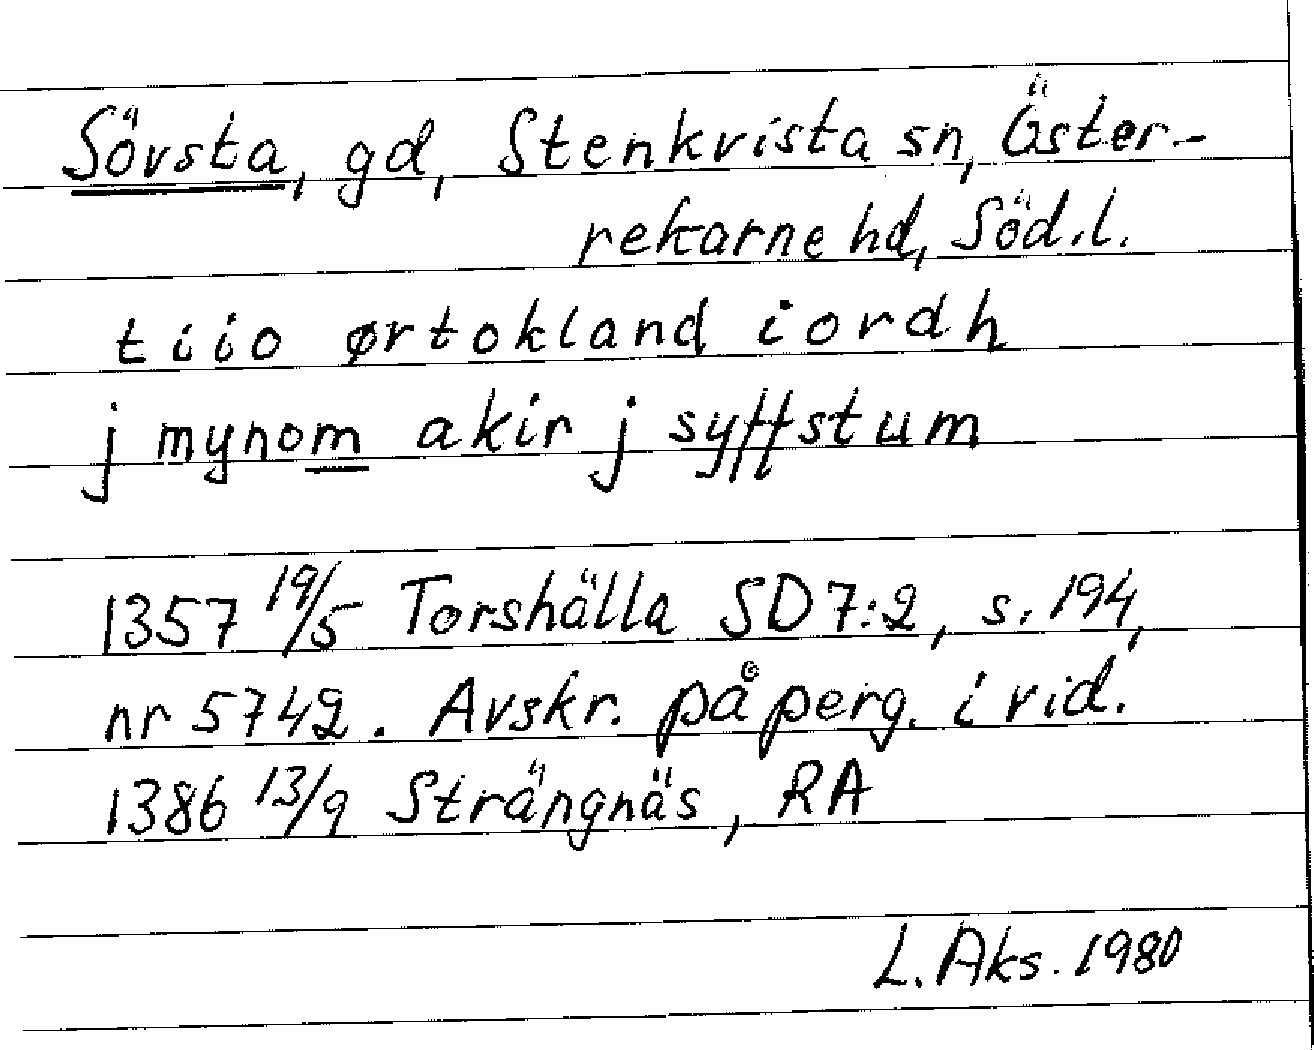 Sövsta, gd, Stenkvista sn, Öster-
rekarne hd, Söd.l.
tiio ørtokland iordh
j mynom akir j syffstum
1357 19/5 Torshälla SD 7:2, s. 194,
nr 5742. Avskr. på perg. i vid.
1386 13/9 Strängnäs, RA
L. Aks. 1980